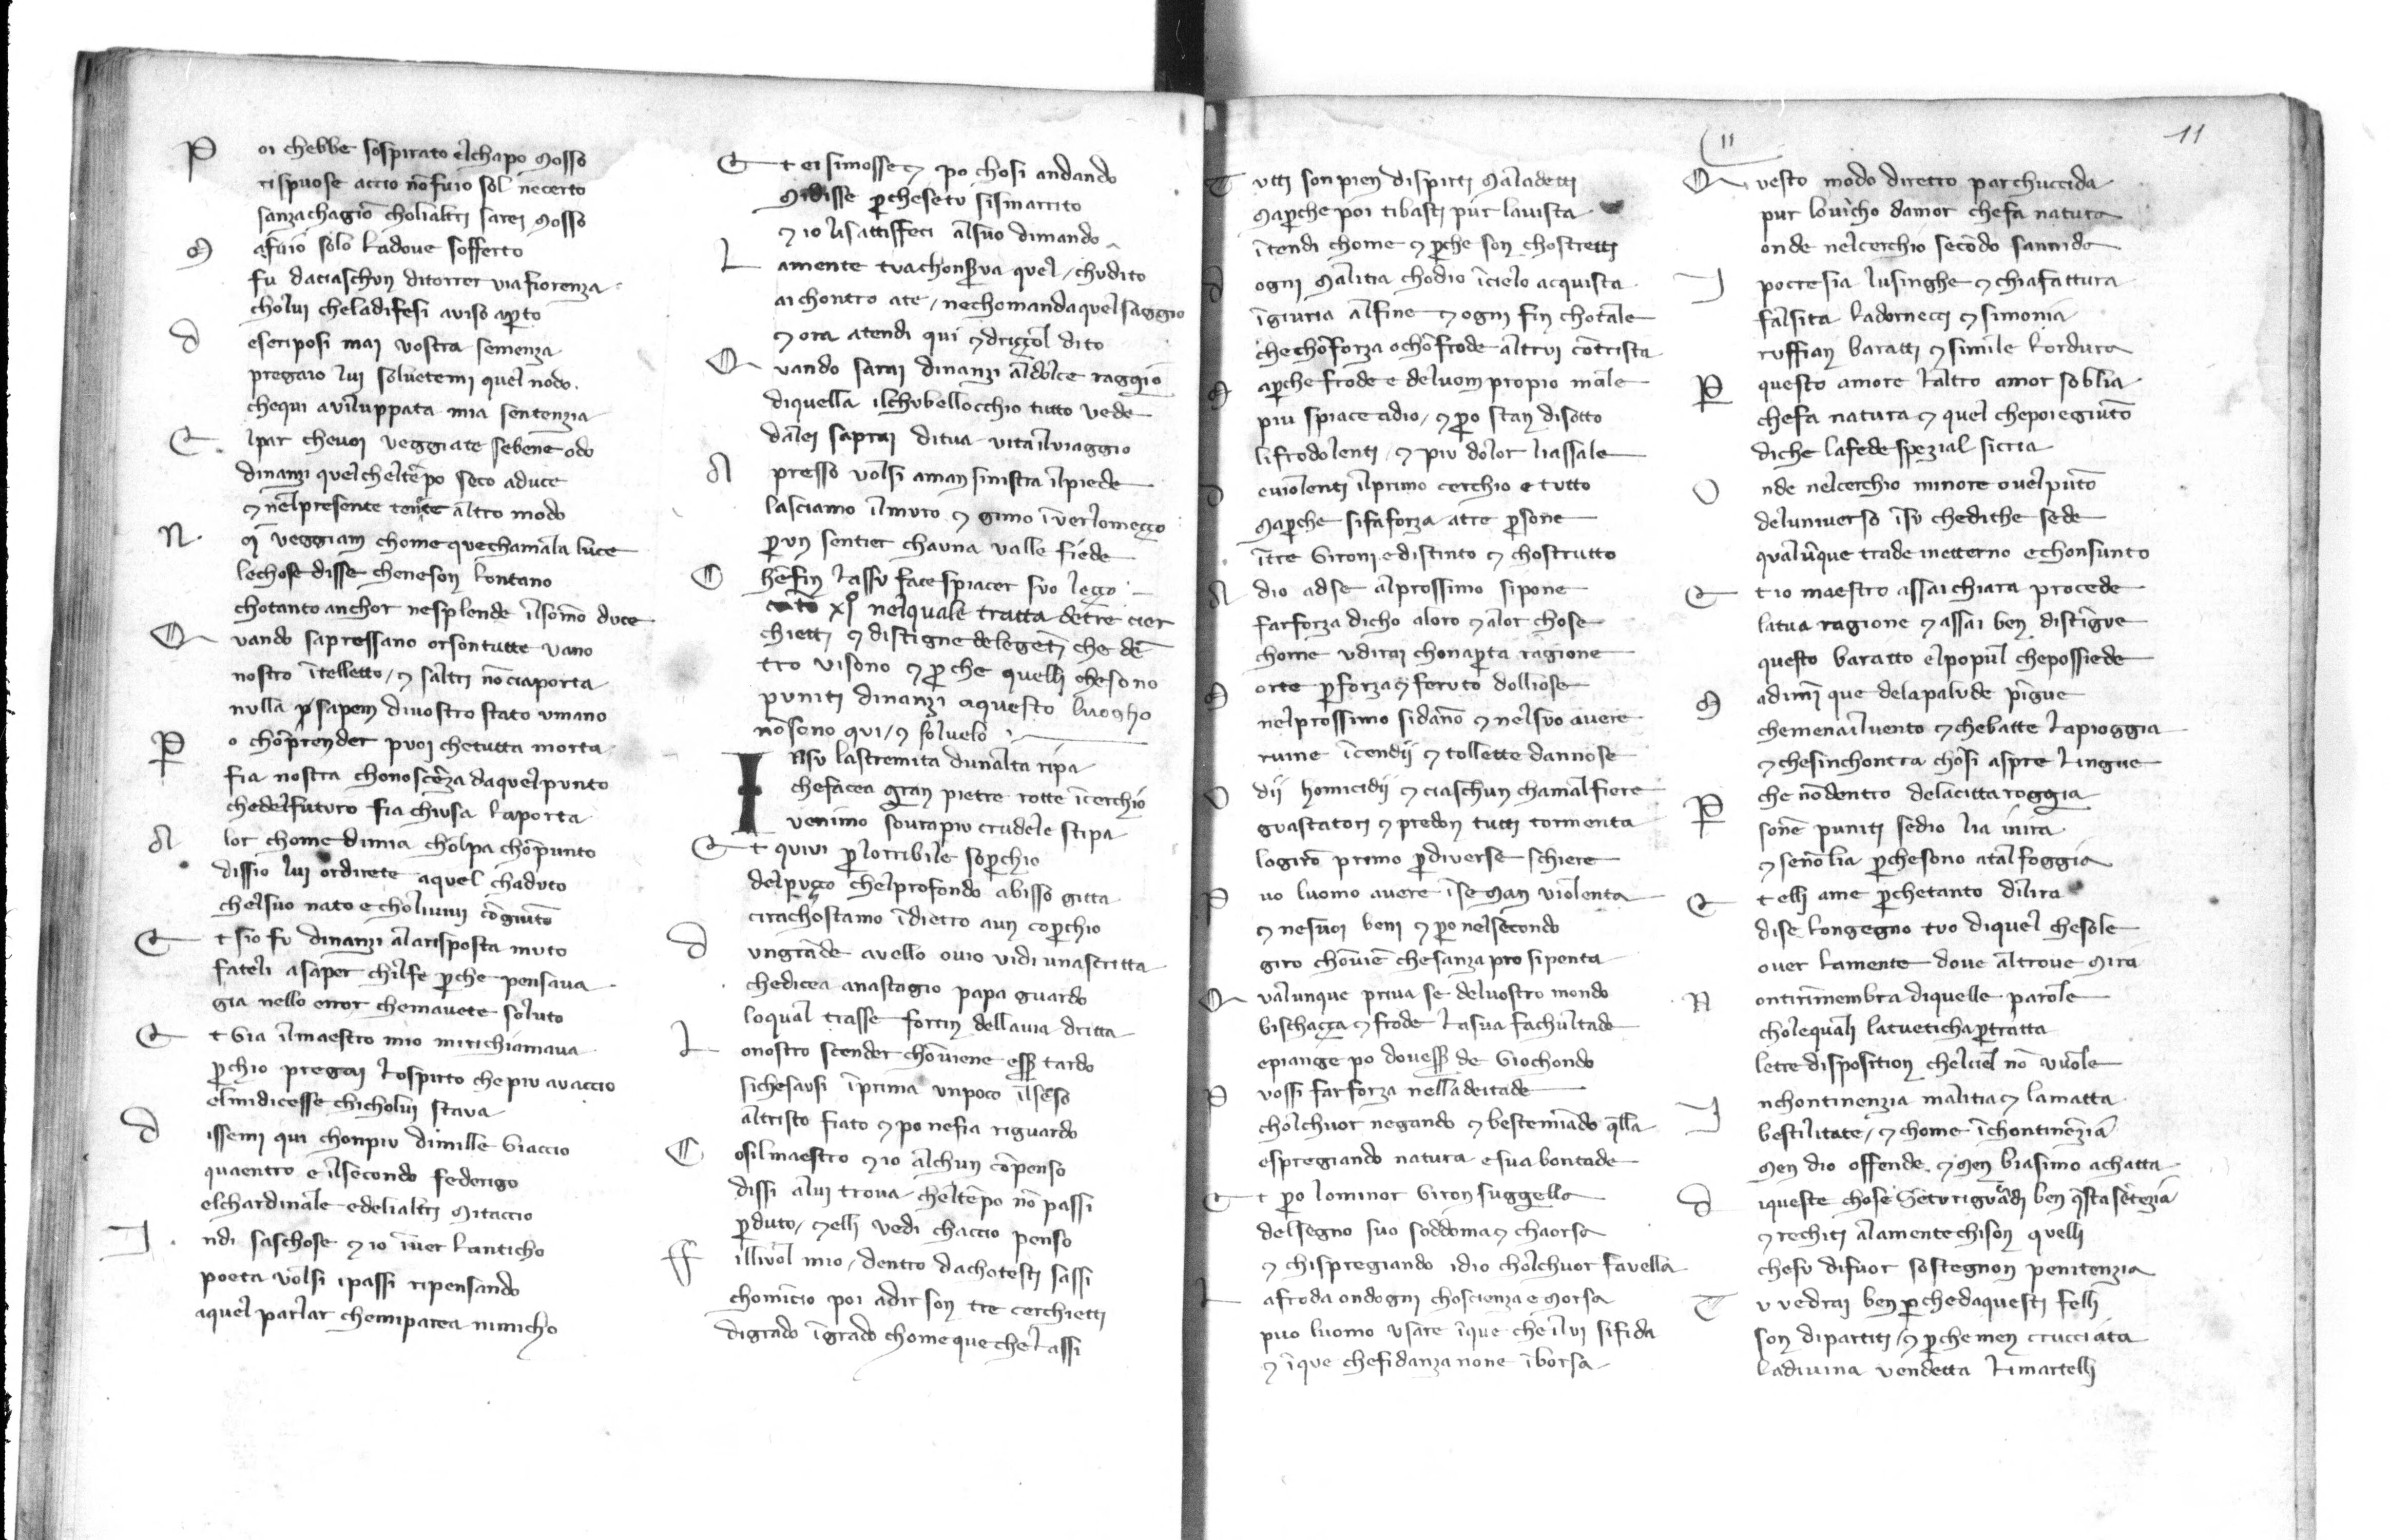 Poi chebbe sospirato elchapo mosso
rispuose accio nōfuio sol necerto
sanzachagiō choliāltri sarei mosso
Mafuiō solo ladove sofferto
fu daciaschun ditorrer via fiorenza
cholui cheladifesi aviso apto
deseriposi mai vostra semenza
pregaio lui solvetemi quel nodo
chequi aviluppata mia sentenzia
Elpar chevoi veggiate sebene odo
dinanzi quelcheltēpo seco aduce
⁊ nelpresente tenete altro modo
Noi veggiam chome quechamala luce
lechose disse cheneson lontano
chotanto anchor nesplende ilsomo duce
Quando sapressano orsontutte vano
nostro ītelletto / ⁊ saltri nōciaporta
nulla p sapem divostro stato umano
Po chōprender puoi chetutta morta
fia nostra chonoscēza daquelpunto
chedelfuturo fia chiusa laporta
Alor chome dimia cholpa chōpunto
dissio lui ordirete aquel chaduto
chelsuo nato e cholivivi cōgiuto
Et sio fu dinanzi alarisposta muto
fateli asaper chilfe pche pensava
gia nello error chemavete soluto
Et Gia ilmaestro mio mirichiamava
pchio pregai lospirto chepiu avaccio
elmidicesse chicholui stava
dissemi qui chonpiu dimille Giaccio
quaentro e ilsecondo federigo
elchardinale edeliāltri mitaccio
Indi saschose ⁊ io iver lanticho
poeta volsi ipassi ripensando
aquel parlar chemiparea nimicho
Et ei simosse ⁊ po chosi andando
midisse pcheseto sismarrito
⁊ io lisattisfeci alsuo dimando
Lamente tuachonsva quel / chudito
ai chontro ate / nechomandaquelsaggio
⁊ ora atendi qui ⁊drizzol dito
Quando sarai dinanzi aldolce raggio
diquella ilchubellocchio tutto vede
dalei saprai ditua vitailviaggio
Apresso volsi aman sinistra ilpiede
lasciamo ilmuro ⁊ gimo īverlomezzo
pun sentier chauna valle fiede
Chēfin lassu facespiacer suo lezzo
cāto xj nelquale tratta detre cier
chietti ⁊ distigne delegēti che dē
tro visono ⁊ pche quelli chesono
puniti dinanzi aquesto luogho
nōsono qui / ⁊ solvelo
INsu lastremita dunalta ripa
chefacea gran pietre rotte īcerchio
venimo sourapiu crudele stipa
Et quivi plorribile sopchio
delpuzzo chelprofondo abisso gitta
cirachostamo īdietro aun copchio
dungrāde avello ovio vidi unascritta
chedicea anastagio papa guardo
loqual trasse fortin dellavia dritta
Lonostro scender chōviene ess tardo
sichesausi īprima unpoco ilsēso
altristo fiato ⁊ po nefia riguardo
Cosilmaestro ⁊ io alchun cōpenso
dissi alui trova cheltēpo nō passi
pduto / ⁊elli vedi chaccio penso
ffillivol mio / dentro dachotesti sassi
chomīcio poi adir son tre cerchietti
digrado īgrado chomequechelassi
11
11
Tutti sonpien dispirti maladetti
mapche poi tibasti pur lavista
ītendi chome ⁊ pche son chostretti
dogni malitia chodio īcielo acquista
īgiuria alfine ⁊ ogni fin chotale
chechōforza ochōfrode altrui cōtrista
Mapche frode e deluom propio male
piu spiace adio / ⁊ po stan disotto
lifrodolenti / ⁊ piu dolor liassale
deviolenti ilprimo cerchio e tutto
mapche sifaforza atre psone
ītre Gironi edistinto ⁊ chostrutto
Adio adse alprossimo sipone
farforza dicho aloro ⁊ alor chose
chome udirai chonapta ragione
Morte pforza⁊ feruto dolliose
nelprossimo sidāno ⁊ nelsuo avere
ruine īcendij ⁊ tollette dannose
Odij homicidij ⁊ ciaschun chamalfiere
guastatori ⁊ predon tutti tormenta
logirō primo pdiverse schiere
Puo luomo avere īse man violenta
⁊ nesuoi beni ⁊ ponelsecondo
giro chōviē chesanzapro sipenta
Qualunque priva se delvostro mondo
bischazza ⁊ frode lasua fachultade
epiange po dovess de Giochondo
Puossi farforza nelladeitade
cholchuor negando ⁊ bestemiādo qlla
espregiando natura esua bontade
Et po lominor Giron suggella
delsegno suo soddoma⁊ chaorsa
⁊ chispregiando idio cholchuor favella
Lafroda ondogni choscienza e morsa
puo luomo usare īque cheīlui sifida
⁊ īque chefidanza none īborsa
Questo modo diretro parchuccida
pur lovīcho damor chefa natura
onde nelcerchio secōdo sannida
Ipocresia lusinghe ⁊ chiafattura
falsita ladornecci ⁊ simonia
ruffian baratti ⁊ simile lordura
Pquesto amore laltro amor soblia
chefa natura ⁊ quel chepoiegiuto
diche lafede spezial sicria
Onde nelcerchio minore ovelpūto
deluniverso īsu chedithe sede
qualūque trade inetterno echonsunto
Et io maestro assaichiara procede
latua ragione ⁊ assai ben distīgue
questo baratto elpopul chepossiede
Madimi que delapalude pīgue
chemenailvento ⁊ chebatte lapioggia
⁊ chesinchontra chosi aspre lingue
Pche nōdentro delacitta roggia
sonē puniti sedio lia inira
⁊ senō lia pchesono atal foggia
Et elli ame pchetanto dilira
dise longegno tuo diquel chesole
over lamente dove altrove mira
Nontirimembra diquelle parole
cholequali latuetichaptratta
letre disposition chelciel nō vuole
Inchontinenzia malitia⁊ lamatta
bestilitate / ⁊ chome īchontinēzia
men dio offende ⁊ men biasimo achatta
diqueste chose seturiguardi ben qstasētēzia
⁊ rechiti alamentechison quelli
chesu difuor sostegnon penitenzia
Tu vedrai ben pchedaquesti felli
son dipartiti / ⁊ pchemen crucciata
ladivina vendetta limartelli